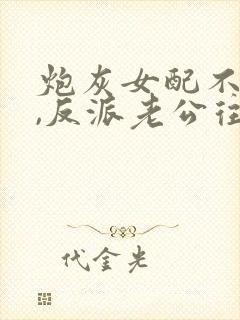 炮灰女配不
,反派老公往
代金光